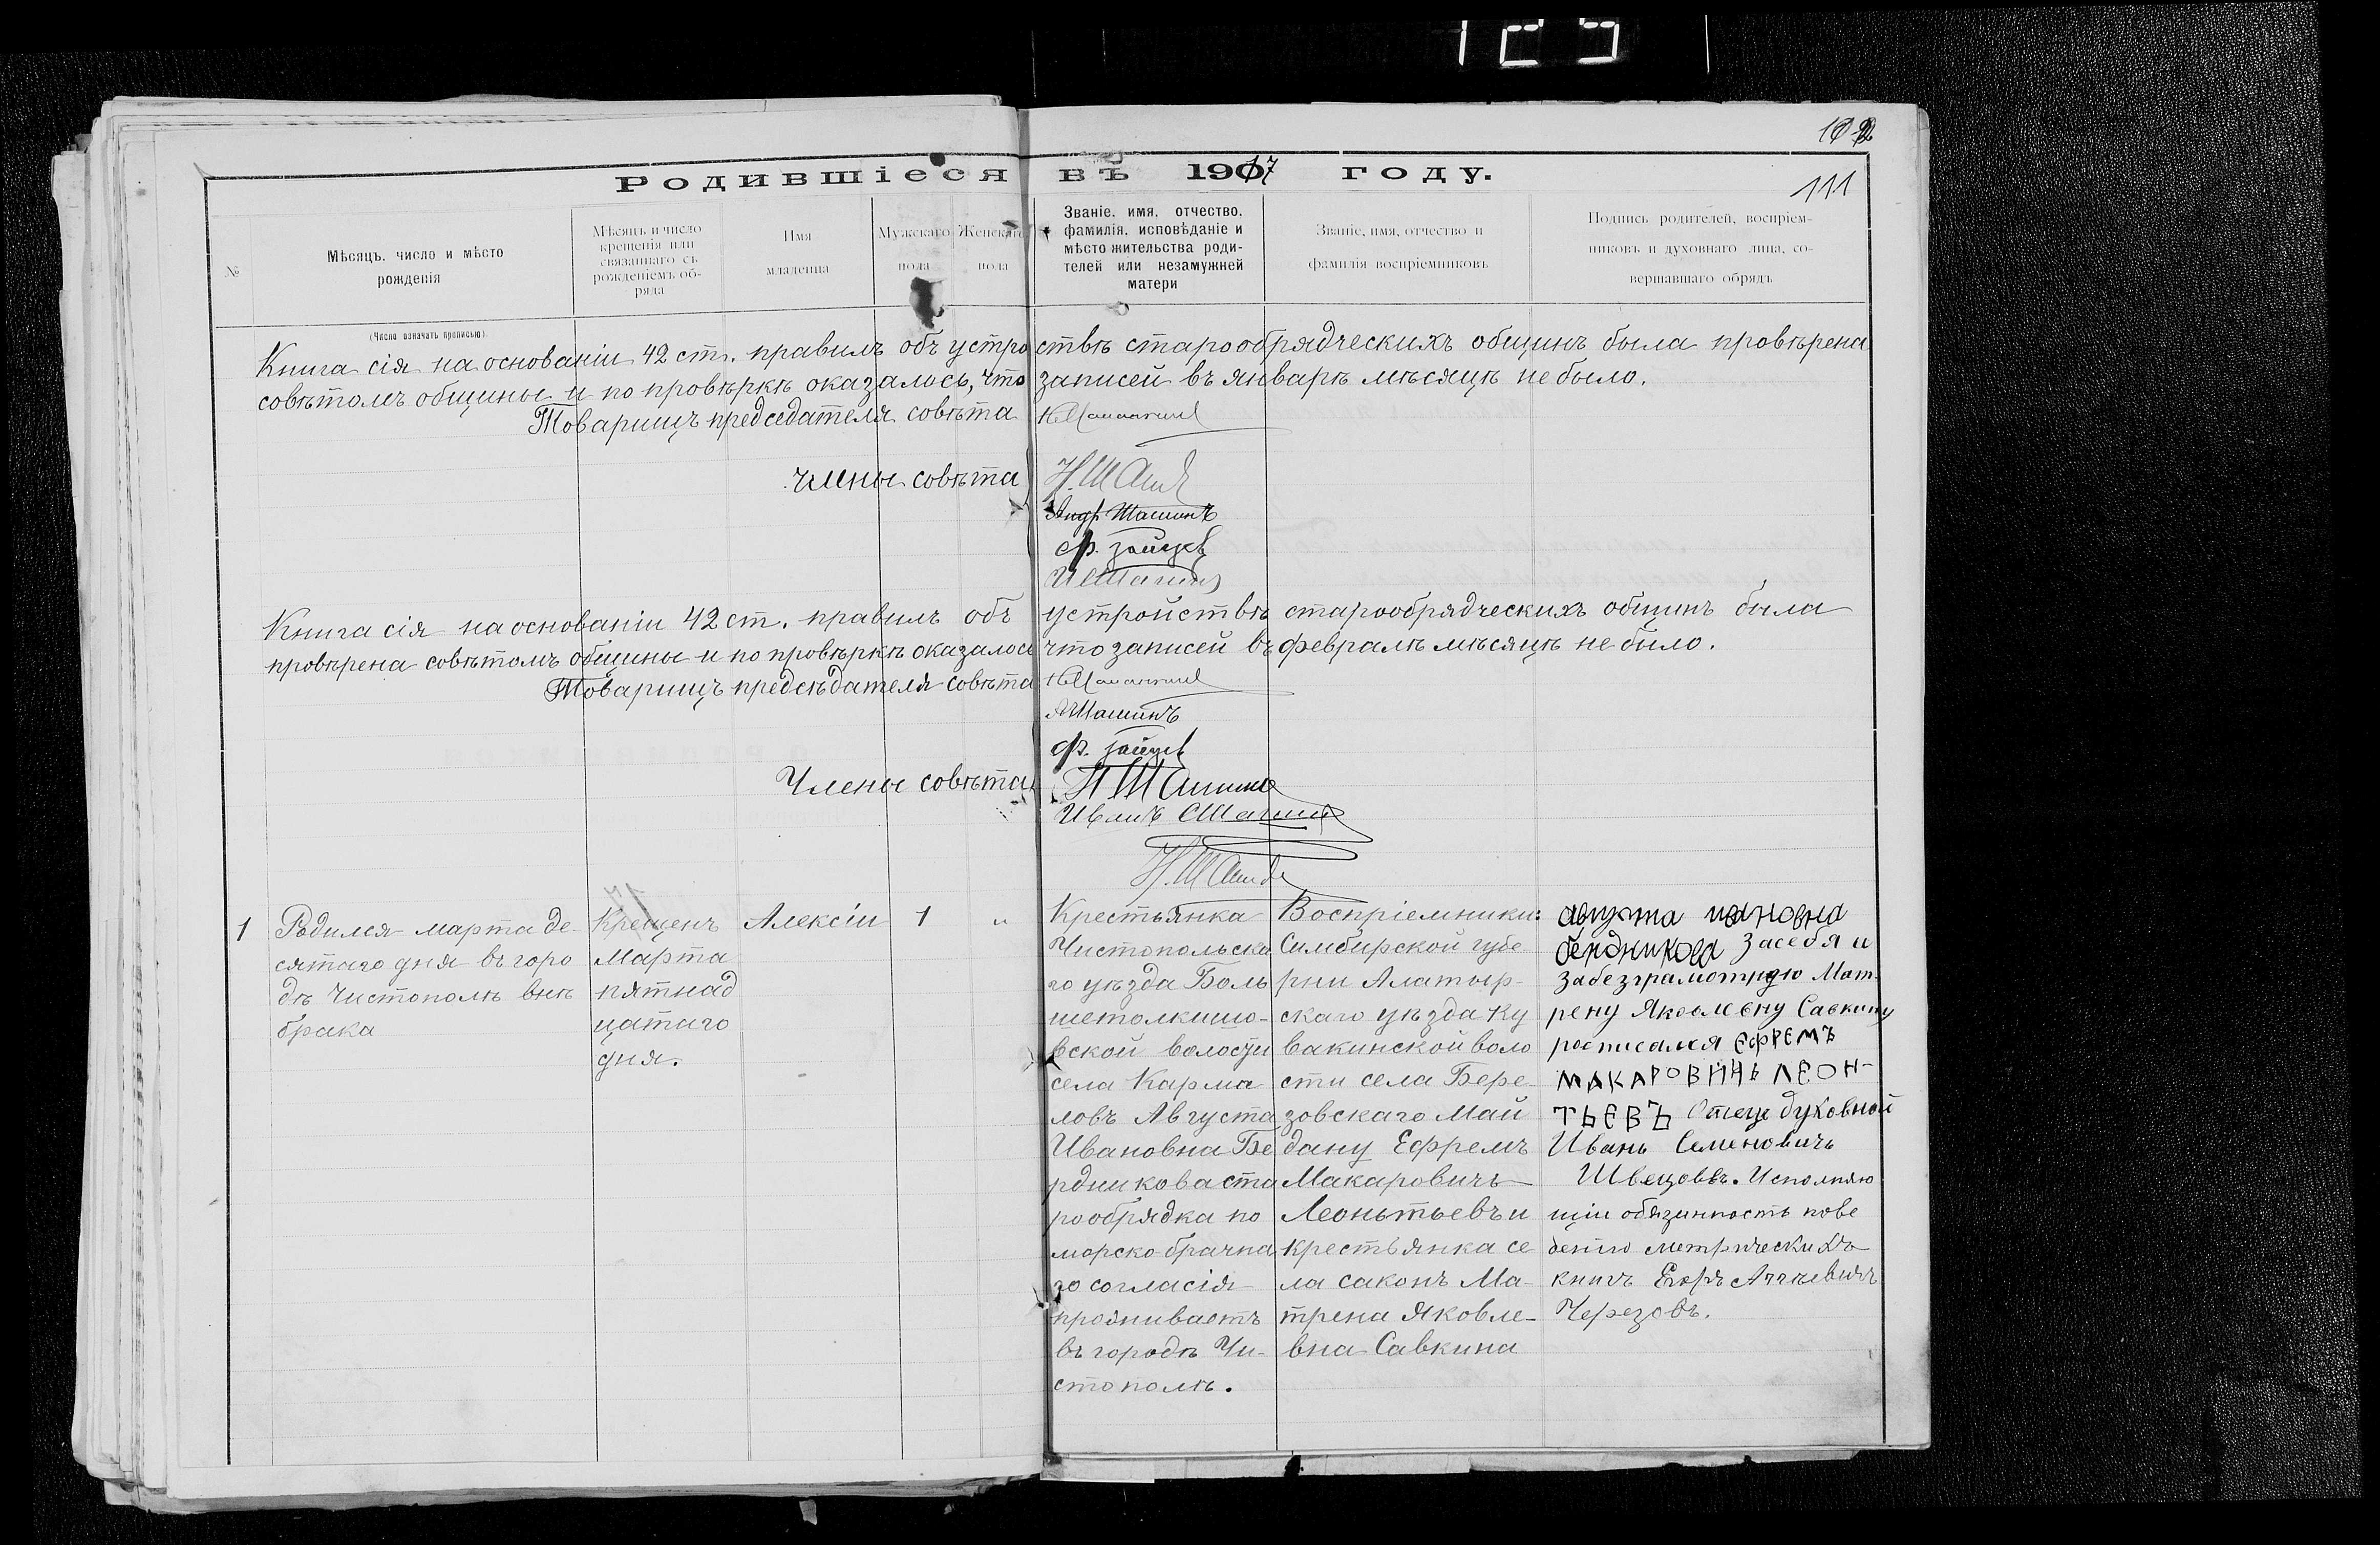 125
102
111
Родившіеся въ 1917 году.
№
Мѣсяцъ, число и мѣсто
рожденія
(Число означать прописью)
Мѣсяцъ и число
крещенія или
связаннаго съ
рожденіемъ об-
ряда
Имя
младенца
Мужскаго
пола
Женскаго
пола
Званіе, имя, отчество,
фамилія, исповѣданіе и
мѣсто жительства роди-
телей или незамужней
матери
Званіе, имя, отчество и
фамилія воспріемниковъ
Подпись родителей, воспріем-
никовъ и духовнаго лица, со-
вершавшаго обрядъ
Книга сія на основаніи 42 ст. правилъ объ устроствѣ старообрядческихъ общинъ была провѣрена
совѣтомъ общины и по провѣркѣ оказалось, что записей въ январѣ мѣсяцѣ не было.
Товарищъ председателя совѣта
Члены совѣта
Андр. Шашинъ
Ф. Зайцев
Книга сія на основаніи 42 ст. правилъ объ устройствѣ старообрядческихъ общинъ была
провѣрена совѣтомъ общины и по провѣркѣ оказалось что записей въ февралѣ мѣсяцѣ не было.
Товарищъ предсѣдателя совѣта
А Шашинъ
Ф. Зайцев
Члены совѣта
1
Родился марта де-
сятаго дня въ горо
дѣ Чистополѣ внѣ
брака
Крещенъ
Марта
пятнад
цатаго
дня.
Алексіи
1
"
Крестьянка
Чистопольска
го уѣзда Боль
шетолкишо-
вской волости
села Карма
ловъ Августа
Ивановна Бе
рдникова ста
рообрядка по
морско-брачна
го согласія
проживаетъ
въ городѣ Чи-
стополѣ.
Воспріемники:
Симбирской губе
рни Алатыр-
скаго уѣзда Ку
вакинской воло
сти села Бере-
зовскаго Май
дану Ефремъ
Макаровичь
Леонтьевъ и
крестьянка се
ла саконъ Ма-
трена Яковле-
вна Савкина
августа ивановна
бердникова Засебя и
забезграмотную Мат-
рену Яковлевну Савкину
росписался ЕФРЕМЪ
МАКАРОВИЧЬ ЛЕОН-
ТЬЕВЪ Отецъ духовной
Иванъ Семеновичъ
Швецовъ. Исполняю
щіи обязанность пове
денію метрическихъ
книгъ Егоръ
Черезовъ.